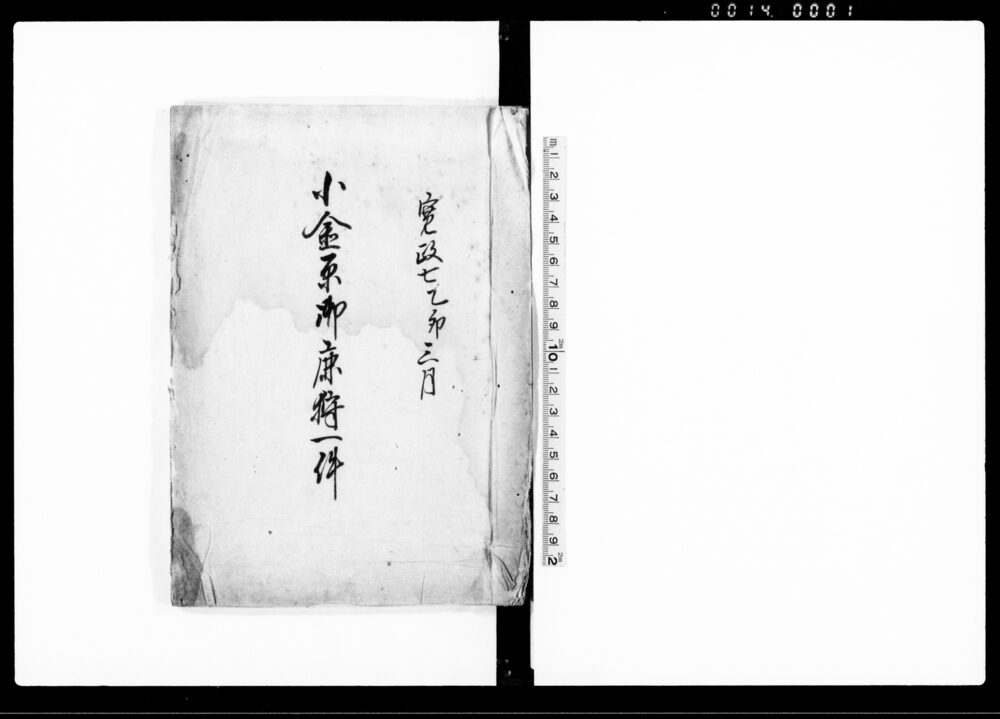 0014 0001
寛政七乙卯三月
小金原御鹿狩一件
m 1 2 3 4 5 6 7 8 9 10 1 2 3 4 5 6 7 8 9 2